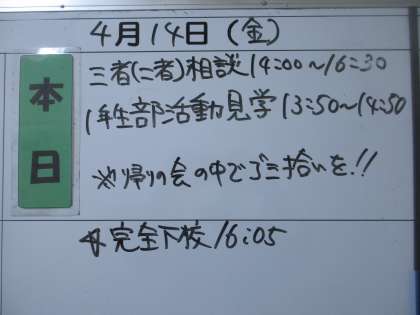 4月14日(金)
本日
三者(二者)相談14:00~16:30
1年生部活動見学13:50~14:50
※帰りの会の中でゴミ拾いを!!
完全下校16:05